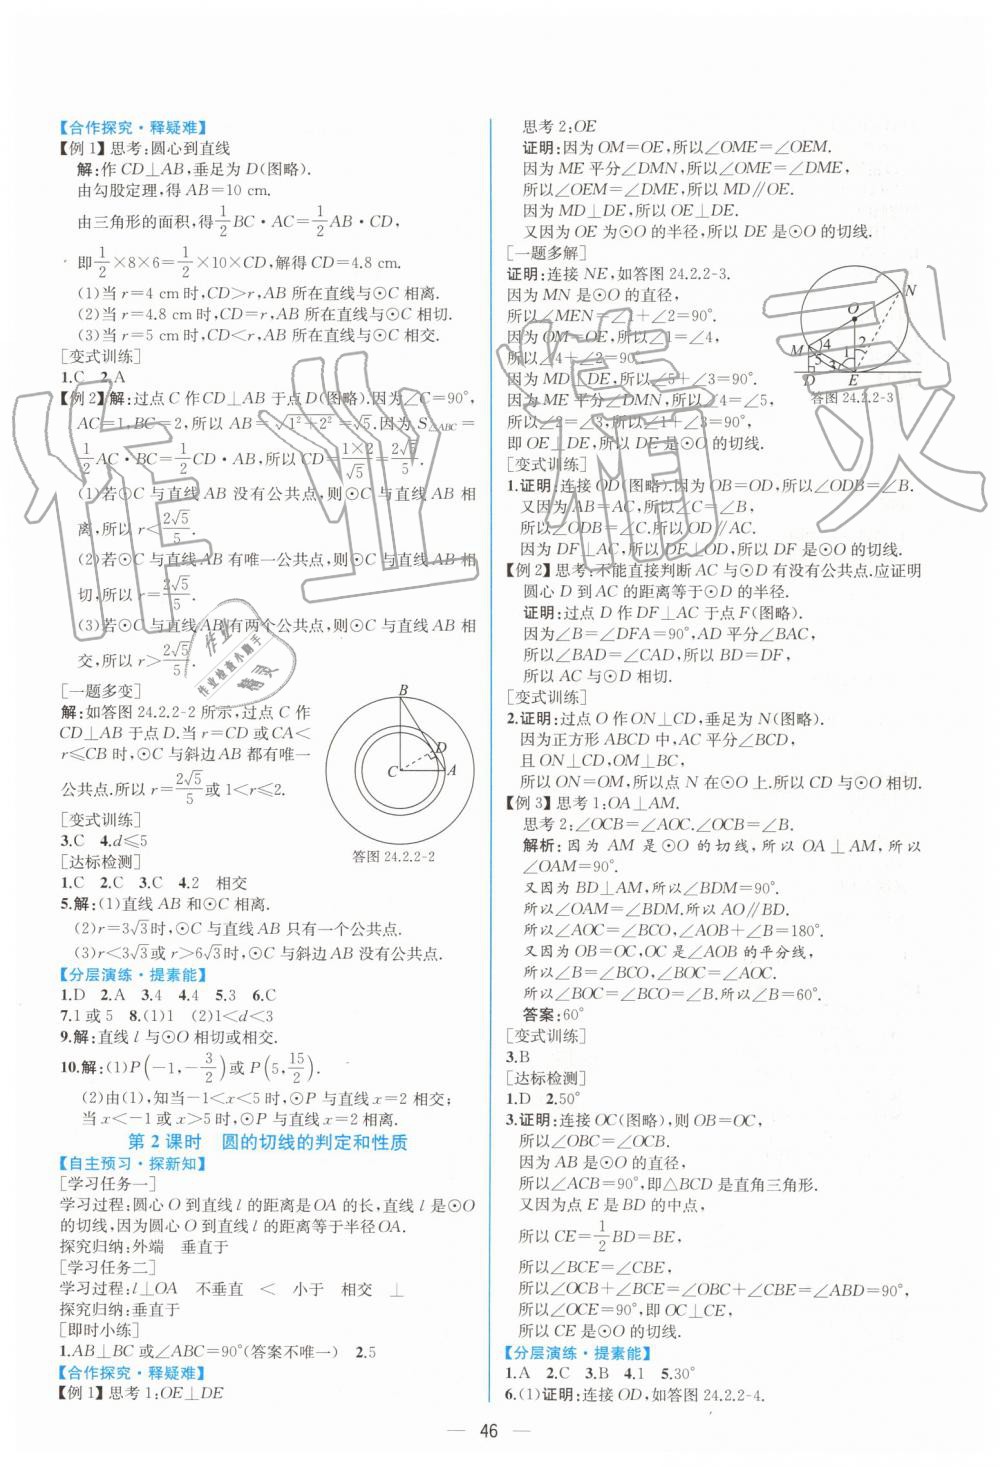 【合作探究·释疑难】
【例1】思考:圆心到直线
解:作CD⊥AB,垂足为D(图略).
由勾股定理,得AB=10 cm.
由三角形的面积,得1/2BC·AC=1/2AB·CD,
即1/2×8×6=1/2×10×CD,解得CD=4.8 cm.
(1)当r=4 cm时,CD>r,AB所在直线与⊙C相离.
(2)当r=4.8 cm时,CD=r,AB所在直线与⊙C相切.
(3)当r=5 cm时,CD<r,AB所在直线与⊙C相交.
[变式训练]
1.C 2.A
【例2】解:过点C作CD⊥AB于点D(图略).因为∠C=90°,
AC=1,BC=2,所以AB=√(1²+2²)=√5.因为S△ABC=
1/2AC·BC=1/2CD·AB,所以CD=(1×2)/√5=2√5/5.
(1)若⊙C与直线AB没有公共点,则⊙C与直线AB相
离,所以r<2√5/5.
(2)若⊙C与直线AB有唯一公共点,则⊙C与直线AB相
切,所以r=2√5/5.
(3)若⊙C与直线AB有两个公共点,则⊙C与直线AB相
交,所以r>2√5/5.
[一题多变]
解:如答图24.2.2-2所示,过点C作
CD⊥AB于点D.当r=CD或CA<
r≤CB时,⊙C与斜边AB都有唯一
公共点.所以r=2√5/5或1<r≤2.
B
C
D
A
答图24.2.2-2
[变式训练]
3.C 4.d≤5
[达标检测]
1.C 2.C 3.C 4.2 相交
5.解:(1)直线AB和⊙C相离.
(2)r=3√3时,⊙C与直线AB只有一个公共点.
(3)r<3√3或r>6√3时,⊙C与线段AB没有公共点.
【分层演练·提素能】
1.D 2.A 3.4 4.4 5.3 6.C
7.1或5 8.(1)1 (2)1<d<3
9.解:直线l与⊙O相切或相交.
10.解:(1)P(-1,-3/2)或P(5,15/2).
(2)由(1),知当-1<x<5时,⊙P与直线x=2相交;
当x<-1或x>5时,⊙P与直线x=2相离.
第2课时 圆的切线的判定和性质
【自主预习·探新知】
[学习任务一]
学习过程:圆心O到直线l的距离是OA的长,直线l是⊙O
的切线,因为圆心O到直线l的距离等于半径OA.
探究归纳:外端 垂直于
[学习任务二]
学习过程:l⊥OA 不垂直 < 小于 相交 ⊥
探究归纳:垂直于
[即时小练]
1.AB⊥BC或∠ABC=90°(答案不唯一) 2.5
【合作探究·释疑难】
【例1】思考1:OE⊥DE
思考2:OE
证明:因为OM=OE,所以∠OME=∠OEM.
因为ME平分∠DMN,所以∠OME=∠DME,
所以∠OEM=∠DME,所以MD∥OE.
因为MD⊥DE,所以OE⊥DE.
又因为OE为⊙O的半径,所以DE是⊙O的切线.
[一题多解]
证明:连接NE,如答图24.2.2-3.
因为MN是⊙O的直径,
所以∠MEN=∠1+∠2=90°.
因为OM=OE,所以∠1=∠4,
所以∠4+∠2=90°.
因为MD⊥DE,所以∠5+∠3=90°.
因为ME平分∠DMN,所以∠4=∠5,
所以∠2=∠3,所以∠1+∠3=90°,
即OE⊥DE,所以DE是⊙O的切线.
N
O
M
4
2
5
3
1
D
E
答图24.2.2-3
[变式训练]
1.证明:连接OD(图略).因为OB=OD,所以∠ODB=∠B.
又因为AB=AC,所以∠C=∠B,
所以∠ODB=∠C,所以OD∥AC.
因为DF⊥AC,所以DF⊥OD,所以DF是⊙O的切线.
【例2】思考:不能直接判断AC与⊙D有没有公共点.应证明
圆心D到AC的距离等于⊙D的半径.
证明:过点D作DF⊥AC于点F(图略).
因为∠B=∠DFA=90°,AD平分∠BAC,
所以∠BAD=∠CAD,所以BD=DF,
所以AC与⊙D相切.
[变式训练]
2.证明:过点O作ON⊥CD,垂足为N(图略).
因为正方形ABCD中,AC平分∠BCD,
且ON⊥CD,OM⊥BC,
所以ON=OM,所以点N在⊙O上.所以CD与⊙O相切.
【例3】思考1:OA⊥AM.
思考2:∠OCB=∠AOC.∠OCB=∠B.
解析:因为AM是⊙O的切线,所以OA⊥AM,所以
∠OAM=90°.
又因为BD⊥AM,所以∠BDM=90°,
所以∠OAM=∠BDM.所以AO∥BD.
所以∠AOC=∠BCO,∠AOB+∠B=180°.
又因为OB=OC,OC是∠AOB的平分线,
所以∠B=∠BCO,∠BOC=∠AOC.
所以∠BOC=∠BCO=∠B.所以∠B=60°.
答案:60°
[变式训练]
3.B
[达标检测]
1.D 2.50°
3.证明:连接OC(图略),则OB=OC,
所以∠OBC=∠OCB.
因为AB是⊙O的直径,
所以∠ACB=90°,即△BCD是直角三角形.
又因为点E是BD的中点,
所以CE=1/2BD=BE,
所以∠BCE=∠CBE,
所以∠OCB+∠BCE=∠OBC+∠CBE=∠ABD=90°,
所以∠OCE=90°,即OC⊥CE,
所以CE是⊙O的切线.
【分层演练·提素能】
1.A 2.C 3.B 4.1 5.30°
6.(1)证明:连接OD,如答图24.2.2-4.
46
作业精灵
作业
作业快查小助手
精灵